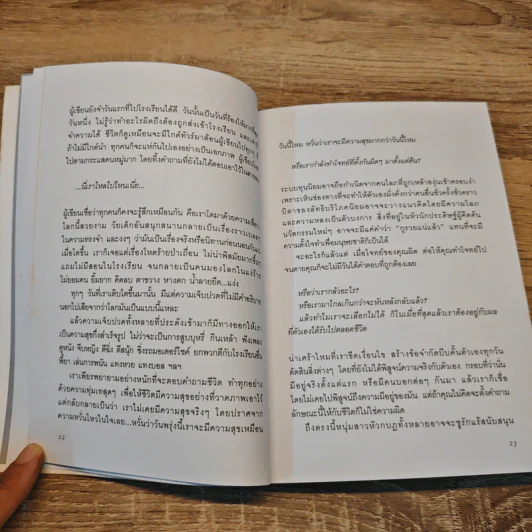 ผู้เขียนยังจำวันแรกที่ไปโรงเรียนได้ดี วันนั้นเป็นวันที่ร้องไห้มากที่สุด
วันหนึ่ง ไม่รู้ว่าทำอะไรผิดถึงต้องถูกส่งเข้าโรงเรียน และตั้งแต่
จำความได้ ชีวิตก็ดูเหมือนจะมีไกด์ทัวร์มาต้อนผู้เขียนไปทุกที่
ถ้าไม่มีไกด์นำ ทุกคนก็จะแห่กันไปเองอย่างเป็นเอกภาพ ผู้เขียน
ไปตามกระแสคนหมู่มาก โดยทิ้งคำถามที่ยังไม่ได้ตอบเอาไว้ใน
...นี่เราไหลไปไหนเนี่ย...
ผู้เขียนเชื่อว่าทุกคนก็คงจะรู้สึกเหมือนกัน คือเราโตมาด้วยความเชื่อ
โลกนี้สวยงาม วัยเด็กอันสนุกสนานกลายเป็นเรื่องราวเบลอๆ
ในความทรงจำ และงงๆ ว่ามันเป็นเรื่องจริงหรือนิทานก่อนนอนกันแน่
เมื่อโตขึ้น เราก็เจอแต่เรื่องโหดร้ายป่าเถื่อน ไม่น่าพิสมัยมากขึ้นๆ
แถมไม่มีสอนในโรงเรียน จนกลายเป็นคนมองโลกในแง่ร้าย
ไม่ยอมคน ยิ้มยาก คิดลบ ตาขวาง หางตก น้ำลายยืด...แง่ง
ทุกๆ วันที่เราเติบโตขึ้นมานั้น มีแต่ความเจ็บปวดที่ไม่มีคำอธิบาย
นอกไปเสียจากว่าโลกมันเป็นแบบนี้แหละ
แล้วความเจ็บปวดทั้งหลายที่ประดังเข้ามาก็มีทางออกให้เรา
เป็นความสุขกึ่งสำเร็จรูป ไม่ว่าจะเป็นการสูบบุหรี่ กินเหล้า ฟังเพลง
ดูหนัง จีบหญิง ดีดิ้น ดีสนุ้ก ซิ่งรถมอเตอร์ไซค์ ยกพวกตีกับโรงเรียนอื่น
พี้ยา เล่นการพนัน แทงหวย แทงบอล ฯลฯ
เราเพียรพยายามอย่างหนักที่จะตอบคำถามชีวิต ทำทุกอย่าง
ด้วยความทุ่มเทสุดๆ เพื่อให้ชีวิตมีความสุขอย่างที่วาดภาพเอาไว้
แต่กลับกลายเป็นว่า เราไม่เคยมีความสุขจริงๆ โดยปราศจาก
ความหวั่นไหวในใจเลย...หวั่นว่าวันพรุ่งนี้เราจะมีความสุขเหมือน
22
วันนี้ไหม หวั่นว่าเราจะมีความสุขมากกว่าวันนี้ไหม
หรือเรากำลังทำโจทย์ที่ตั้งกันผิดๆ มาตั้งแต่ต้น?
ระบบทุนนิยมอาจถือกำเนิดจากคนโลภที่ถูกเหลาองุ่นเข้าครอบงำ
เพราะเห็นช่องทางที่จะทำให้ตัวเองมั่งคั่งกว่าคนอื่นชั่วครั้งชั่วคราว
บิดาของลัทธิบริโภคนิยมอาจจะวางแนวคิดโดยมีความโลภ
และความหลงเป็นตัวบงการ สิ่งที่อยู่ในหัวนักประดิษฐ์ผู้คิดค้น
นวัตกรรมใหม่ๆ อาจจะมีแต่คำว่า “กูรวยแน่แล้ว” แทนที่จะมี
ความตั้งใจทำเพื่อมนุษยชาติก็เป็นได้
จะอะไรก็แล้วแต่ เมื่อโจทย์ของคุณผิด ต่อให้คุณทำโจทย์ไป
จนตายคุณก็จะไม่มีวันได้คำตอบที่ถูกต้องเลย
หรือว่าเรากลัวอะไร?
หรือเรามาไกลเกินกว่าจะหันหลังกลับแล้ว?
แล้วทำไมเราจะเลือกไม่ได้ ก็ในเมื่อที่สุดแล้วเราต้องอยู่กับผล
ที่ตัวเองได้รับไปตลอดชีวิต
น่าเศร้าไหมที่เราขีดเงื่อนไข สร้างข้อจำกัดบีบคั้นตัวเองทุกวัน
ตัดสินสิ่งต่างๆ โดยที่ยังไม่ได้พิสูจน์ความจริงกับตัวเอง กรอบที่ว่านั้น
มีอยู่จริงตั้งแต่แรก หรือมีคนบอกต่อๆ กันมา แล้วเราก็เชื่อ
โดยไม่เคยไปพิสูจน์ถึงความมีอยู่ของมัน แต่ถ้าคุณไม่คิดจะตั้งคำถาม
ลักษณะนี้ให้กับชีวิตก็ไม่ใช่ความผิด
ถึงตรงนี้หนุ่มสาวหัวกบฏทั้งหลายอาจจะชูรักแร้สนับสนุน
23